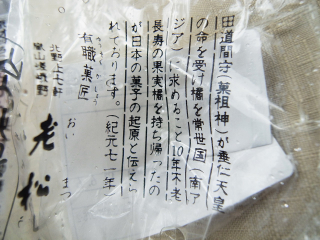 田道間守(菓祖神)が垂仁天皇
の命を受け橘を常世国(南ア
ジア)に求めること10年不老
長寿の果実橘を持ち帰ったの
が日本の菓子の起原と伝えら
れております。(紀元七一年)
有職菓匠
老松
おいまつ
北野上七軒
嵐山嵯峨野